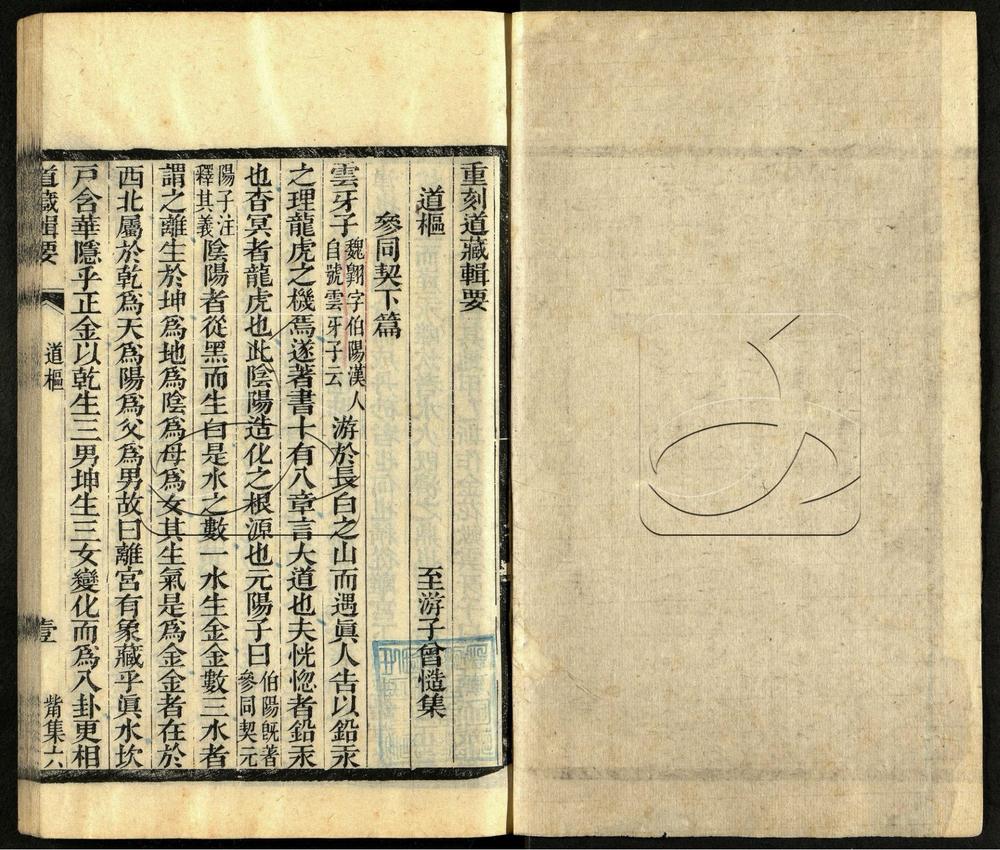 重刻道藏輯要
道樞　至游子曾慥集
參同契下篇
雲牙子魏翺字伯陽漢人自號雲牙子云游於長白之山而遇眞人告以鉛汞
之理龍虎之機焉遂著書十有八章言大道也夫恍惚者鉛汞
也杳冥者龍虎也此陰陽造化之根源也元陽子曰伯陽旣著參同契元
陽子注釋其義陰陽者從黑而生白是水之數一水生金金數三水者
謂之離生於坤爲地爲陰爲母爲女其生氣是爲金金者在於
西北屬於乾爲天爲陽爲父爲男故曰離宮有象藏乎眞水坎
戸含華隱乎正金以乾生三男坤生三女變化而爲八卦更相
道藏輯要　道樞　壹　觜集六